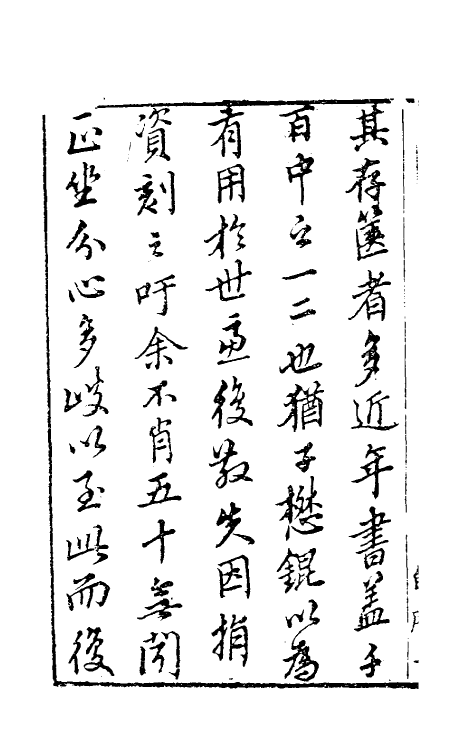 其存篋者多近年書蓋千
百中之一二也猶子懋錕以爲
有用於世慮後散失因捐
資刻之吁余不肖五十無聞
正坐分心多岐以至此而後